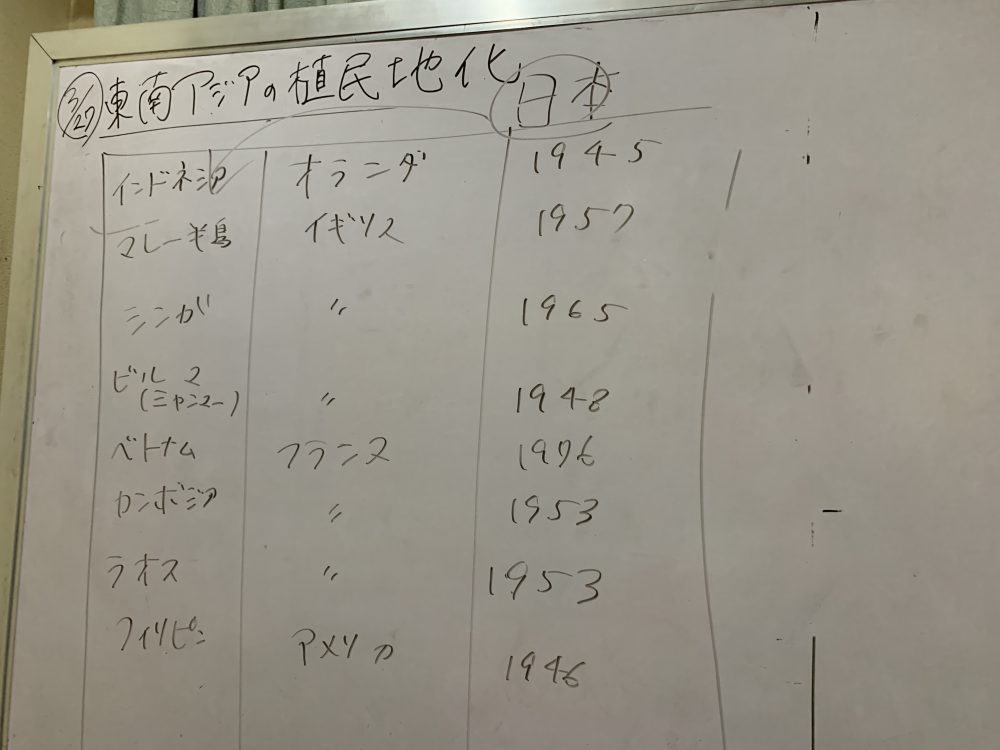 3/27 東南アジアの植民地化 日本
インドネシア オランダ 1945
マレー半島 イギリス 1957
シンガ 〃 1965
ビルマ 〃 1948
(ミャンマー)
ベトナム フランス 1976
カンボジア 〃 1953
ラオス 〃 1953
フィリピン アメリカ 1946